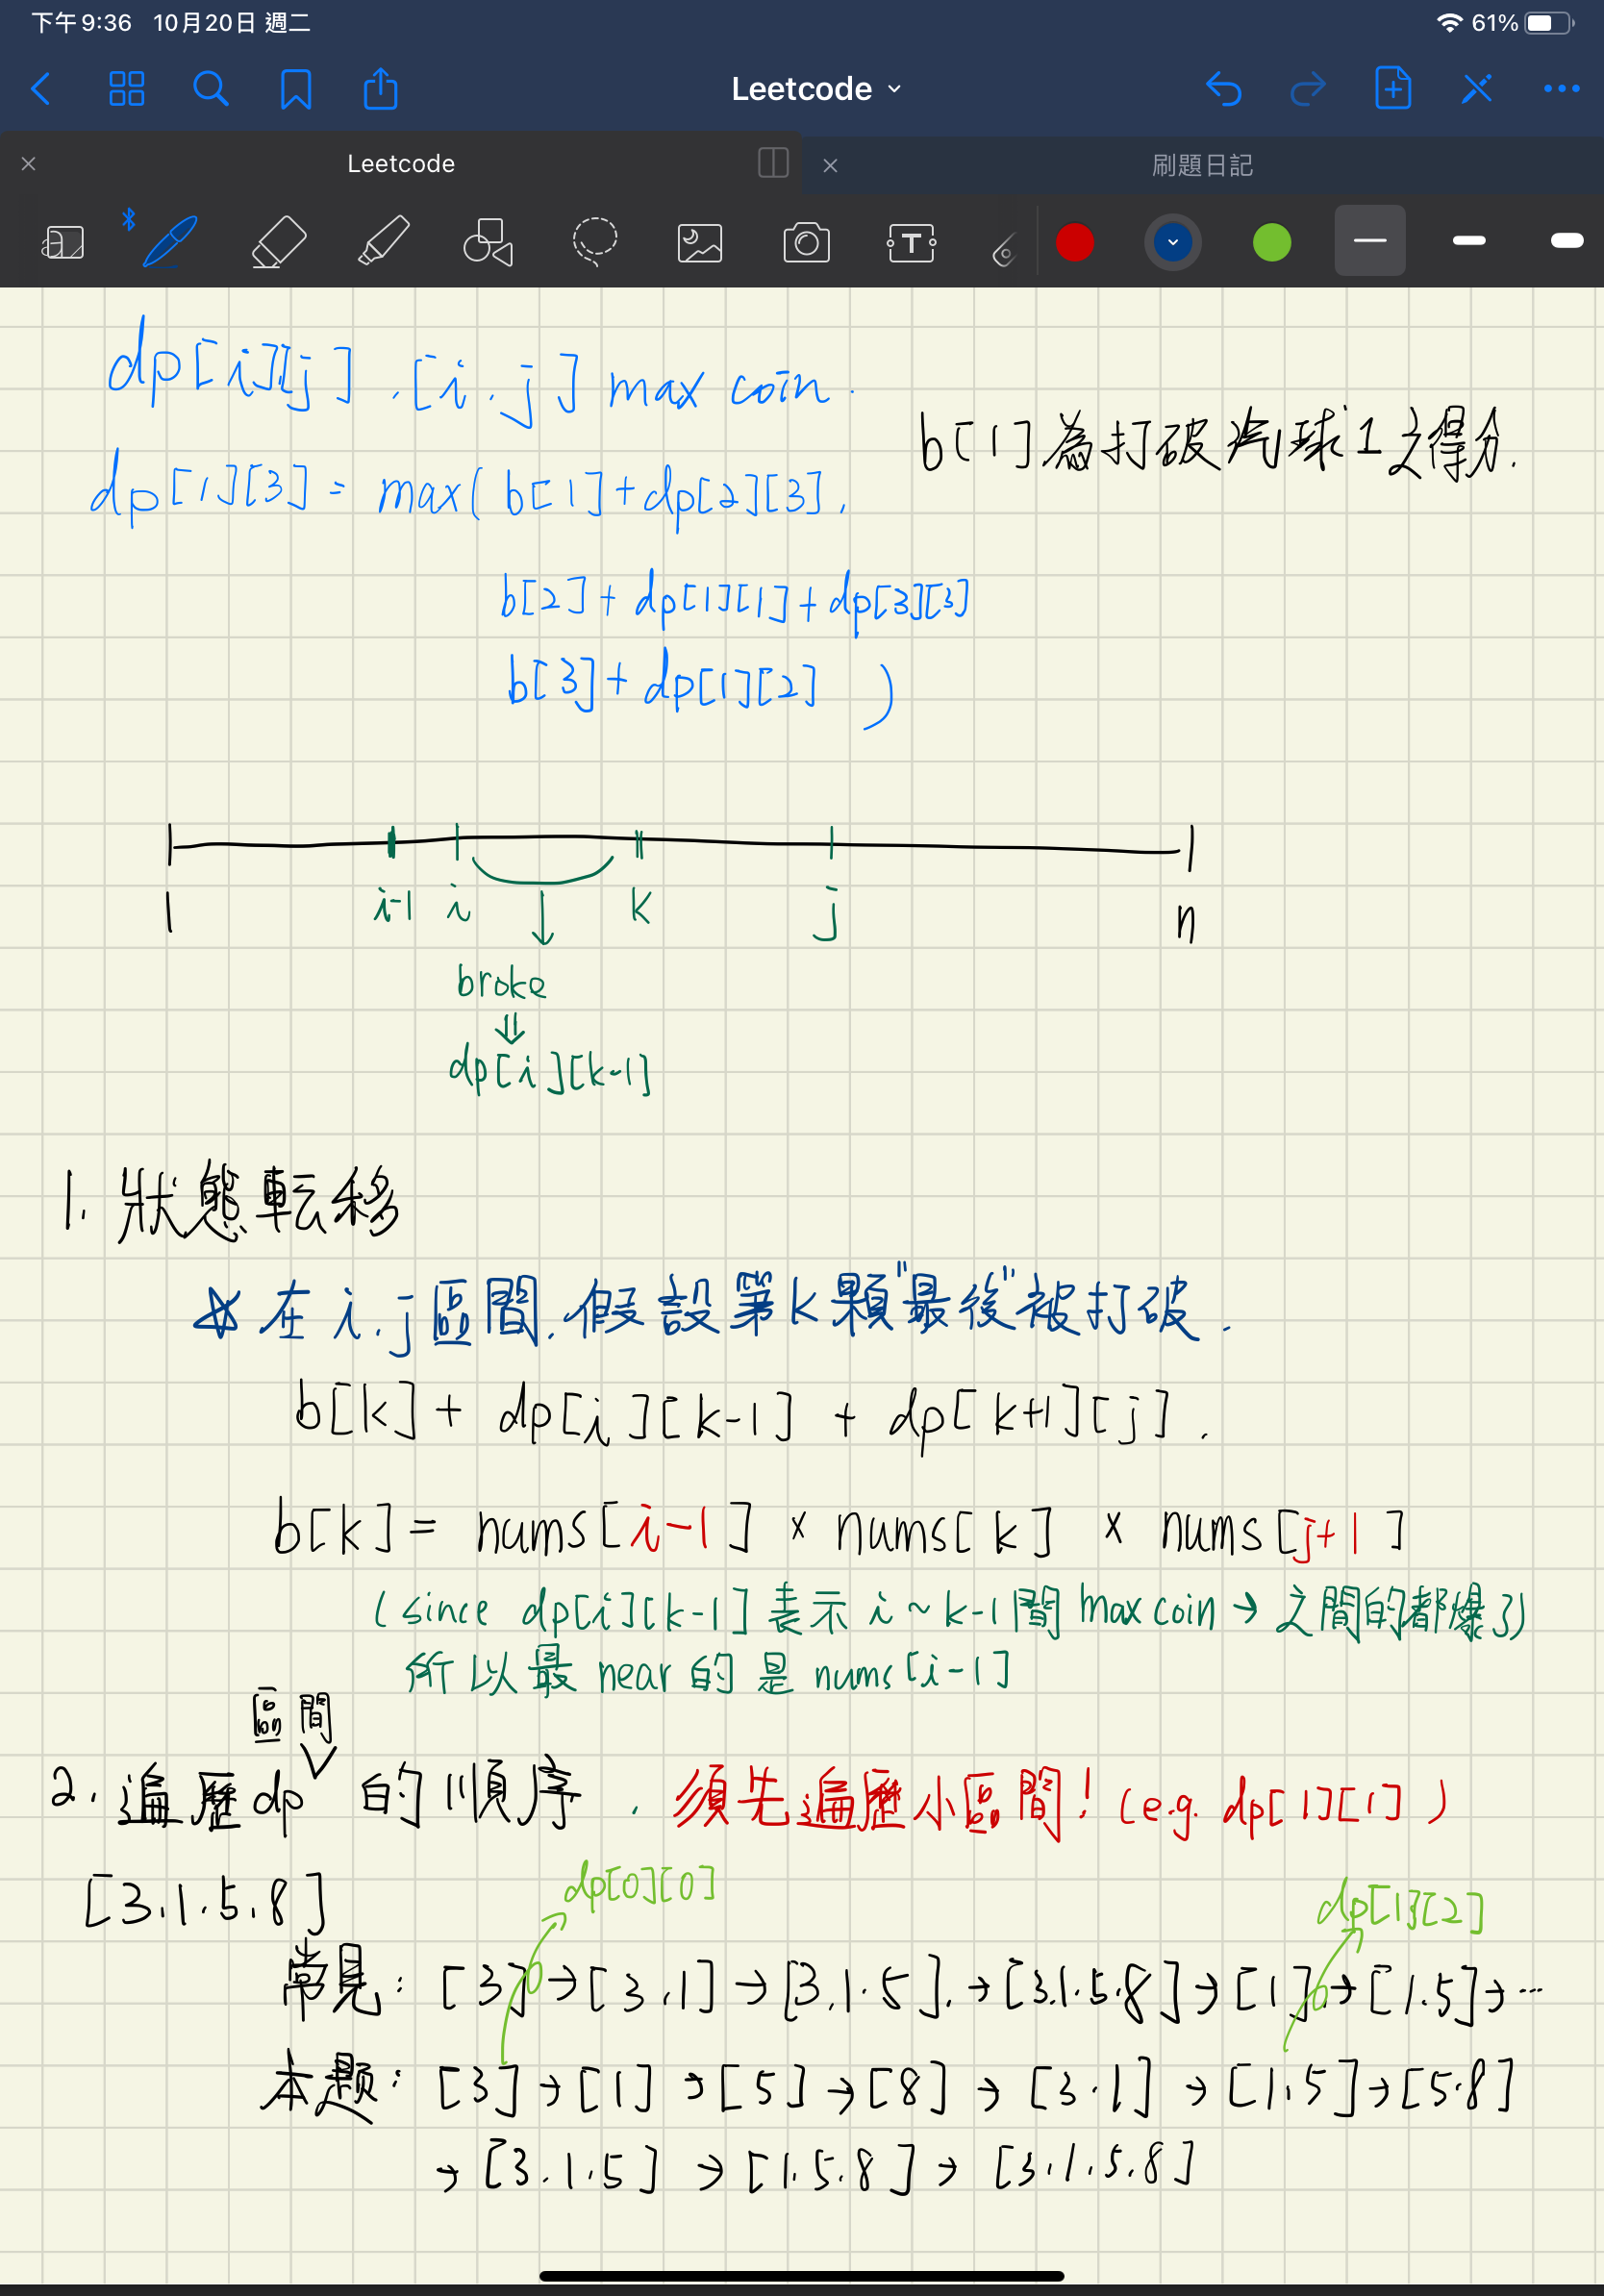 下午9:36 10月20日 週二 61%
Leetcode
Leetcode
刷題日記
T
dp[i][j] . [i.j] max coin.
b[1]為打破汽球1之得分.
dp[1][3] = max( b[1]+dp[2][3].
b[2]+ dp[1][1]+dp[3][3]
b[3]+ dp[1][2] )
i-1 i k j
1 n
broke
⇓
dp[i][k-1]
1. 狀態転移
☆ 在 i.j 區間.假設第k顆"最後"被打破.
b[k]+ dp[i][k-1] + dp[k+1][j].
b[k]= nums[i-1] × nums[k] × nums[j+1]
(since dp[i][k-1] 表示 i~k-1間 max coin → 之間的都爆了)
所以最 near 的是 nums[i-1]
區間
2. 遍歷dp ∨ 的順序. 須先遍歷小區間! (e.g. dp[1][1])
[3.1.5.8]
dp[0][0]
dp[1][2]
常見: [3]→[3.1]→[3.1.5].→[3.1.5.8]→[1]→[1.5]→…
本题: [3]→[1]→[5]→[8]→[3.1]→[1.5]→[5.8]
→[3.1.5]→[1.5.8]→[3.1.5.8]